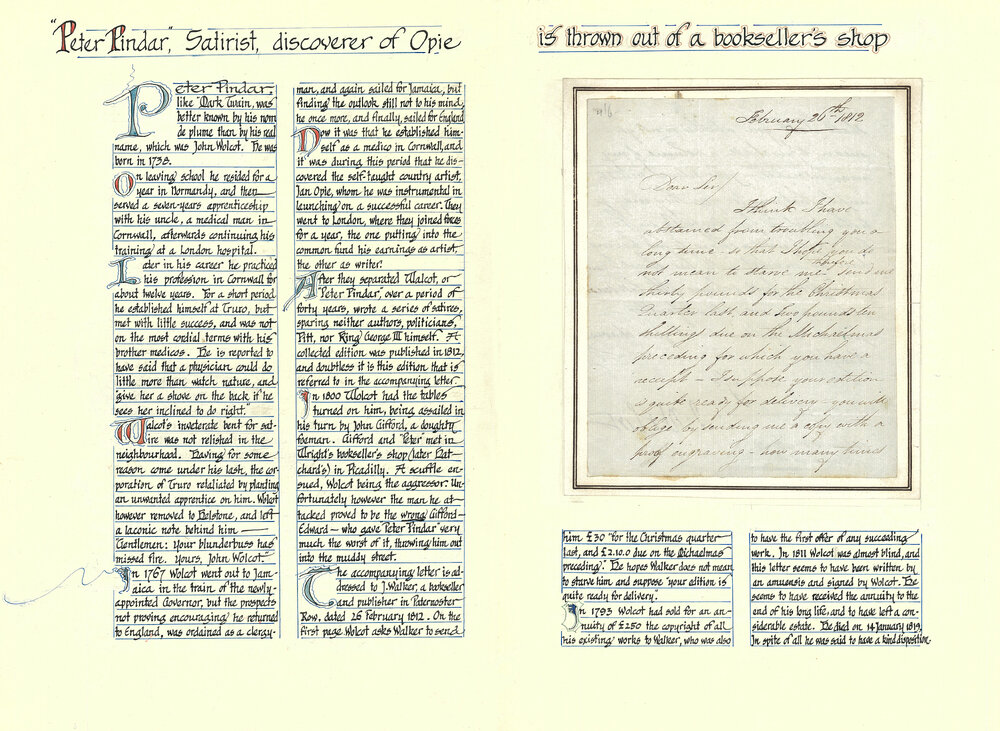 "Peter Pindar", Satirist, discoverer of Opie
is thrown out of a bookseller's shop
Peter Pindar,
like Mark Twain, was
better known by his nom
de plume than by his real
name, which was John Wolcot. He was
born in 1738.
On leaving school he resided for a
year in Normandy, and then
served a seven-years apprenticeship
with his uncle, a medical man in
Cornwall, afterwards continuing his
training at a London hospital.
Later in his career he practiced
his profession in Cornwall for
about twelve years. For a short period
he established himself at Truro, but
met with little success, and was not
on the most cordial terms with his
brother medicos. He is reported to
have said that a physician could do
little more than watch nature, and
give her a shove on the back if he
sees her inclined to do right."
Walcot's inveterate bent for sat-
ire was not relished in the
neighbourhood. Having for some
reason come under his lash, the cor-
poration of Truro relaliated by planting
an unwanted apprentice on him. Wolcot
however removed to Helstone, and left
a laconic note behind him —
Gentlemen: Your blunderbuss has
missed fire. Yours, John Wolcot."
In 1767 Wolcot went out to Jam-
aica in the train of the newly-
appointed Governor, but the prospects
not proving encouraging he returned
to England, was ordained as a clergy-
man, and again sailed for Jamaica, but
finding the outlook still not to his mind,
he once more, and finally, sailed for England
Now it was that he established him-
self as a medico in Cornwall, and
it was during this period that he dis-
covered the self-taught country artist,
Jan Opie, whom he was instrumental in
launching on a successful career. They
went to London, where they joined forces
for a year, the one putting into the
common fund his earnings as artist,
the other as writer.
After they separated Walcot, or
Peter Pindar, over a period of
forty years, wrote a series of satires,
sparing neither authors, politicians,
Pitt, nor King George III himself. A
collected edition was published in 1812,
and doubtless it is this edition that is
referred to in the accompanying letter.
In 1800 Wolcot had the tables
turned on him, being assailed in
his turn by John Gifford, a doughty
foeman. Gifford and "Peter" met in
Wright's bookseller's shop (later Hat-
chard's) in Picadilly. A scuffle en-
sued, Wolcot being the aggressor. Un-
fortunately however the man he at-
tacked proved to be the wrong Gifford —
Edward — who gave "Peter Pindar" very
much the worst of it, throwing him out
into the muddy street.
The accompanying letter is ad-
dressed to J. Walker, a bookseller
and publisher in Paternoster
Row, dated 26 February 1812. On the
first page Wolcot asks Walker to send
February 26th 1812
Dear Sir/
I think I have
abstained from troubling you a
long time. so that I hope you do
not mean to starve me – therefore send me
thirty pounds for the Christmas
Quarter last, and two pounds ten
shillings due on the Michaelmas
preceding for which you have a
receipt – I suppose your edition
is quite ready for delivery – you will
oblige by sending me a copy with a
proof engraving – how many times
him £30 "for the Christmas quarter
last, and £2.10.0 due on the Michaelmas
preceding". He hopes Walker does not mean
to starve him and suppose "your edition is
quite ready for delivery."
In 1793 Wolcot had sold for an an-
nuity of £250 the copyright of all
his existing works to Walker, who was also
to have the first offer of any succeeding
work. In 1811 Wolcot was almost blind, and
this letter seems to have been written by
an amuensis and signed by Wolcot. He
seems to have received the annuity to the
end of his long life, and to have left a con-
siderable estate. He died on 14 January 1819.
In spite of all he was said to have a kind disposition.